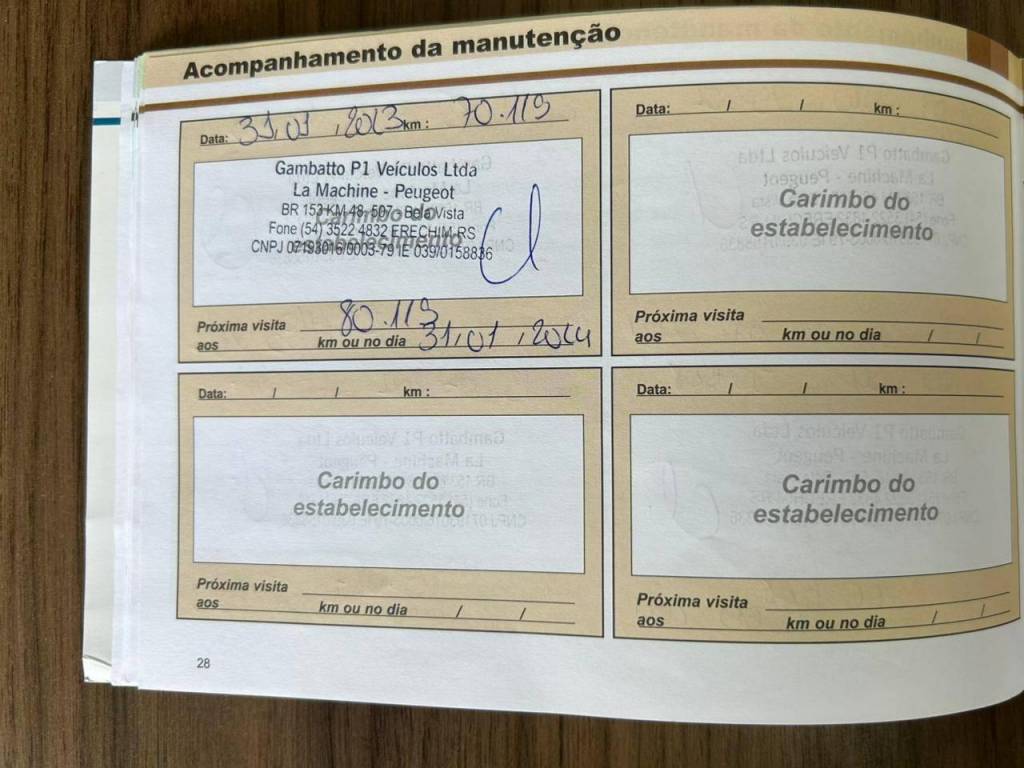 Acompanhamento da manutenção
Data: 31/01/2023 km: 70.119
Gambatto P1 Veículos Ltda
La Machine - Peugeot
BR 153 KM 48, 507 - Bela Vista
Fone (54) 3522 4832 ERECHIM-RS
CNPJ 07193016/0003-79 IE 039/0158836
Carimbo do
estabelecimento
Próxima visita 80.119
aos km ou no dia 31/01/2024
Data: / / km:
Carimbo do
estabelecimento
Próxima visita
aos km ou no dia / /
Data: / / km:
Carimbo do
estabelecimento
Próxima visita
aos km ou no dia / /
Data: / / km:
Carimbo do
estabelecimento
Próxima visita
aos km ou no dia / /
28